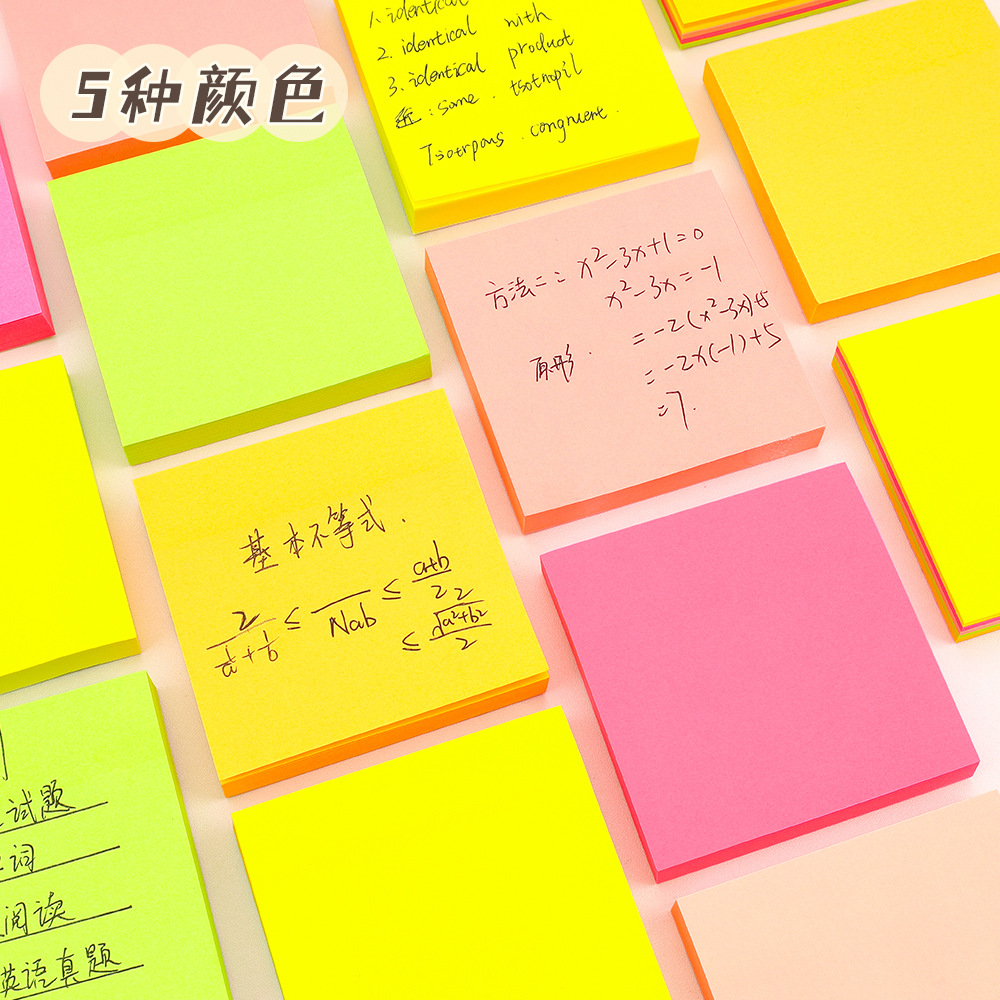 5种颜色
1. identical
2. identical with
3. identical product
: same . tsotropil
Tsotrpous . congruent .
方法二: x²-3x+1=0
x²-3x=-1
原形 . =-2(x²-3x)+5
=-2x(-1)+5
=7.
基本不等式 .
2/(1/a+1/b) ≤ /Nab ≤ (a+b)/2
≤ √(a²+b²/2)/2
试题
词
阅读
英语真题